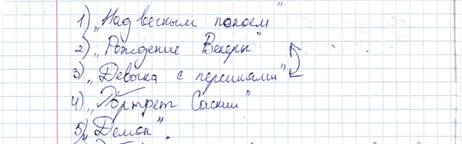 1) „Над вечным покоем"
2) „Рождение Венеры"
3) „Девочка с персиками"
4) „Портрет Саскии"
5) „Демон".